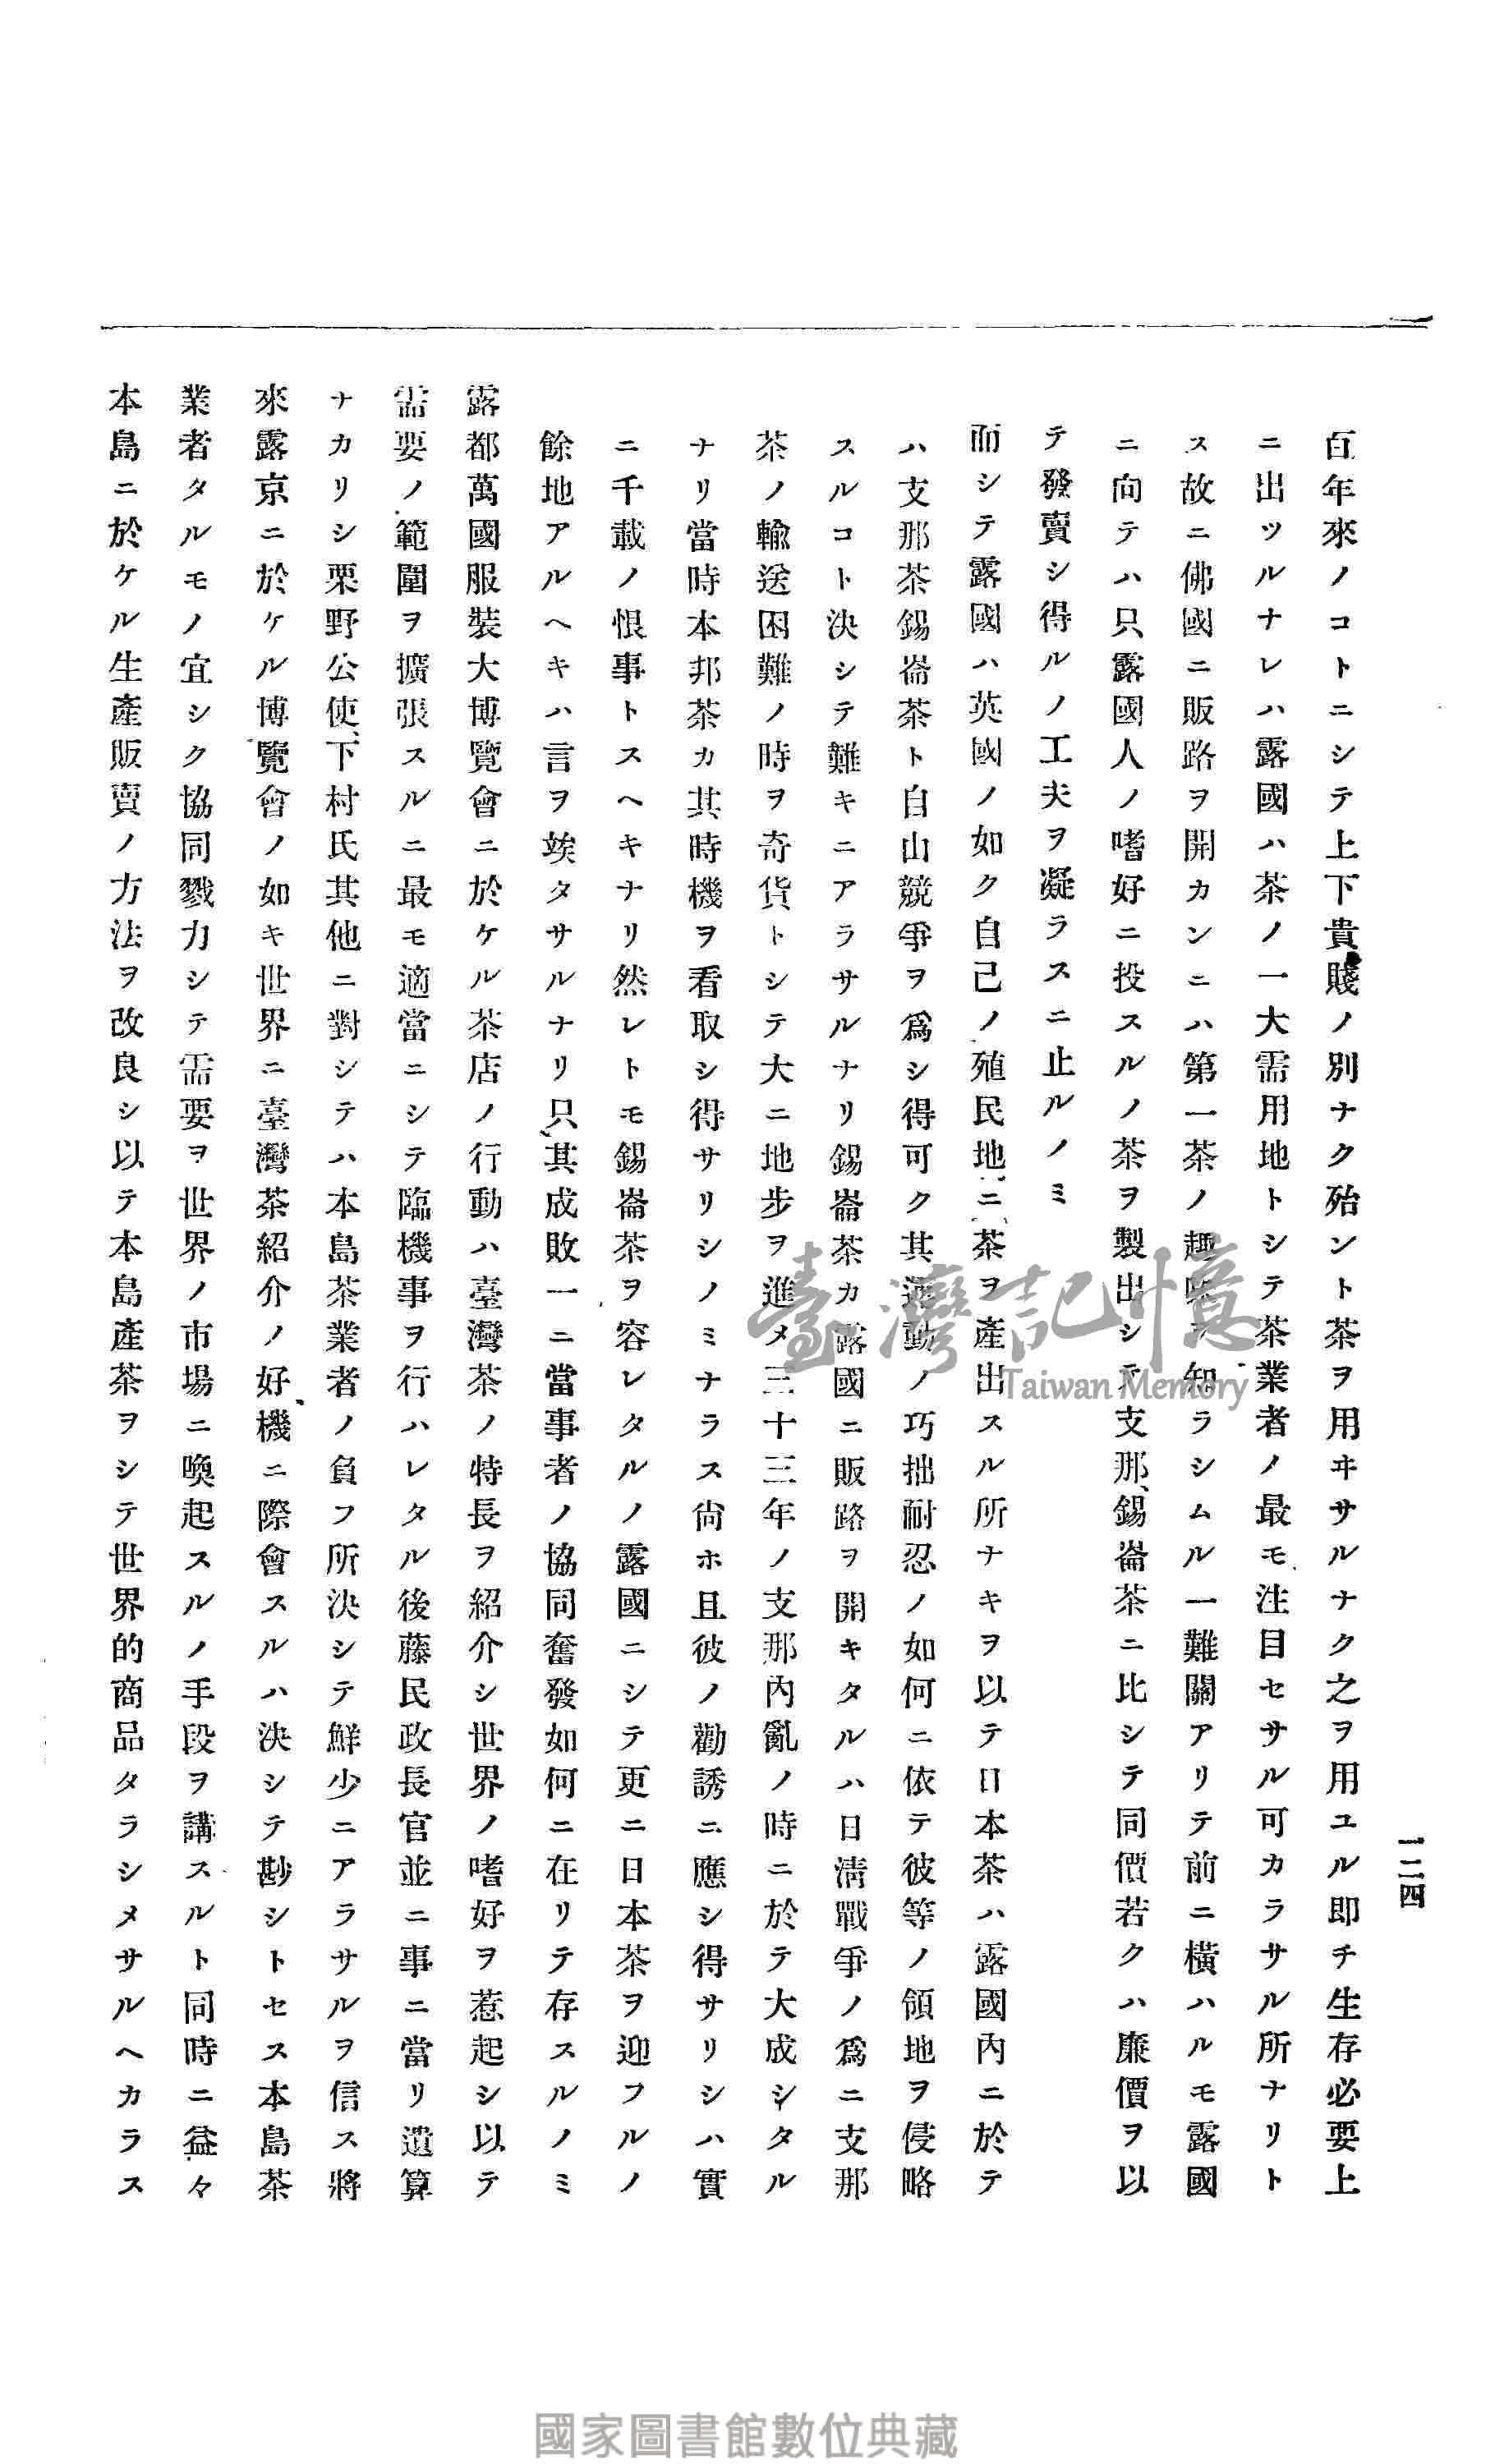 一二四
百年來ノコトニシテ上下貴賤ノ別ナク殆ント茶ヲ用ヰサルナク之ヲ用ユル即チ生存必要上
ニ出ツルナレハ露國ハ茶ノ一大需用地トシテ茶業者ノ最モ注目セサル可カラサル所ナリト
ス故ニ佛國ニ販路ヲ開カンニハ第一茶ノ趣味ヲ知ラシムル一難關アリテ前ニ橫ハルモ露國
ニ向テハ只露國人ノ嗜好ニ投スルノ茶ヲ製出シテ支那、錫崙茶ニ比シテ同價若クハ廉價ヲ以
テ發賣シ得ルノ工夫ヲ凝ラスニ止ルノミ
而シテ露國ハ英國ノ如ク自己ノ殖民地ニ茶ヲ產出スル所ナキヲ以テ日本茶ハ露國內ニ於テ
ハ支那茶錫崙茶ト自由競爭ヲ爲シ得可ク其運動ノ巧拙耐忍ノ如何ニ依テ彼等ノ領地ヲ侵略
スルコト決シテ難キニアラサルナリ錫崙茶カ露國ニ販路ヲ開キタルハ日淸戰爭ノ爲ニ支那
茶ノ輸送困難ノ時ヲ奇貨トシテ大ニ地步ヲ進メ三十三年ノ支那內亂ノ時ニ於テ大成シタル
ナリ當時本邦茶カ其時機ヲ看取シ得サリシノミナラス尙ホ且彼ノ勸誘ニ應シ得サリシハ實
ニ千載ノ恨事トスヘキナリ然レトモ錫崙茶ヲ容レタルノ露國ニシテ更ニ日本茶ヲ迎フルノ
餘地アルヘキハ言ヲ竢タサルナリ只其成敗一ニ當事者ノ協同奮發如何ニ在リテ存スルノミ
露都萬國服裝大博覽會ニ於ケル茶店ノ行動ハ臺灣茶ノ特長ヲ紹介シ世界ノ嗜好ヲ惹起シ以テ
需要ノ範圍ヲ擴張スルニ最モ適當ニシテ臨機事ヲ行ハレタル後藤民政長官並ニ事ニ當リ遺算
ナカリシ栗野公使、下村氏其他ニ對シテハ本島茶業者ノ負フ所決シテ鮮少ニアラサルヲ信ス將
來露京ニ於ケル博覽會ノ如キ世界ニ臺灣茶紹介ノ好機ニ際會スルハ決シテ尠シトセス本島茶
業者タルモノ宜シク協同戮力シテ需要ヲ世界ノ市場ニ喚起スルノ手段ヲ講スルト同時ニ益々
本島ニ於ケル生產販賣ノ方法ヲ改良シ以テ本島產茶ヲシテ世界的商品タラシメサルヘカラス
臺灣記憶
Taiwan Memory
國家圖書館數位典藏